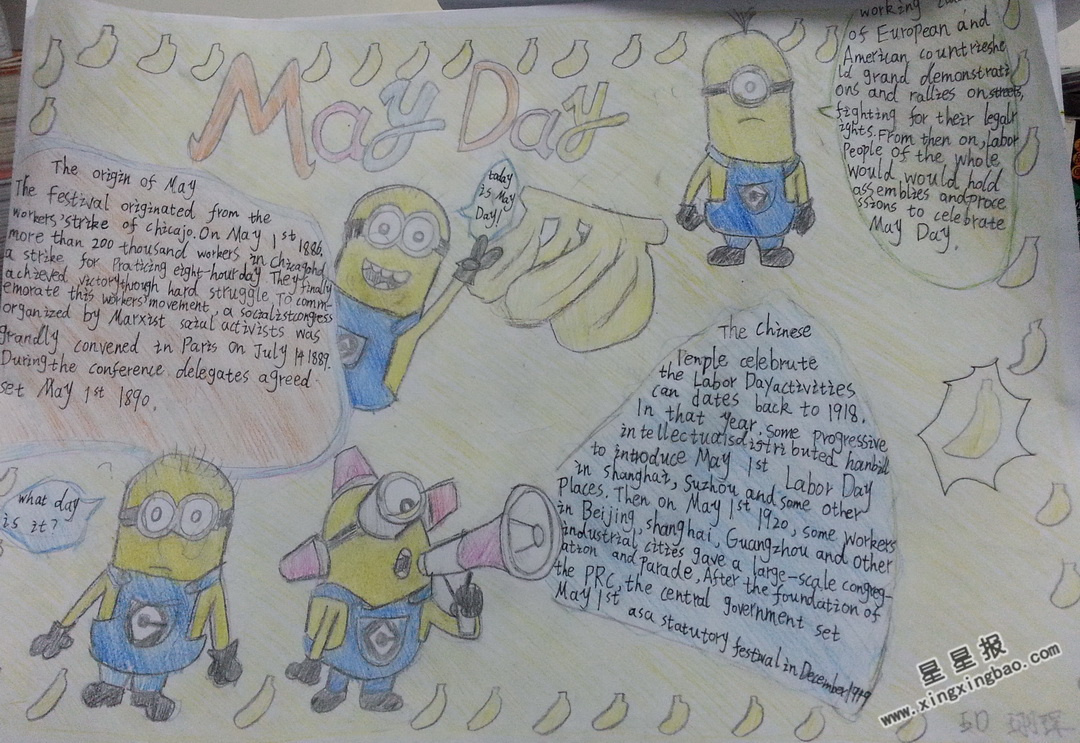 May Day
The origin of May
The festival originated from the
workers'strike of chicajo. On May 1st 1886,
more than 200 thousand workers in Chicagohd
a strike for Praticing eight-hour day They finally
achieved victory though hard struggle To comm-
emorate this workers'movement, a socialistcongress
organized by Marxist social activists was
grandly convened in Paris on July 14 1889.
During the conference delegates agreed
set May 1st 1890.
today
is May
Day!
working
of European and
American countrieshe
ld grand demonstrati
ons and rallies on streets,
fighting for their legalr
ights. From then on, labor
People of the whole
would would hold
assemblies and proce
ssions to celebrate
May Day.
The Chinese
Penple celebrute
the Labor Day activities
can dates back to 1918.
In that year, some progressive
intellectuals distributed hanbill
to introduce May 1st Labor Day
in shanghai, Suzhou and some other
Places. Then on May 1st 1920, some workers
in Beijing, shanghai, Guangzhou and other
industrial cities gave a large-scale congreg-
ation and Parade, After the foundation of
the PRC, the central government set
May 1st as a statutory festival in December 1949
what day
is it?
星星报
www.xingxingbao.com